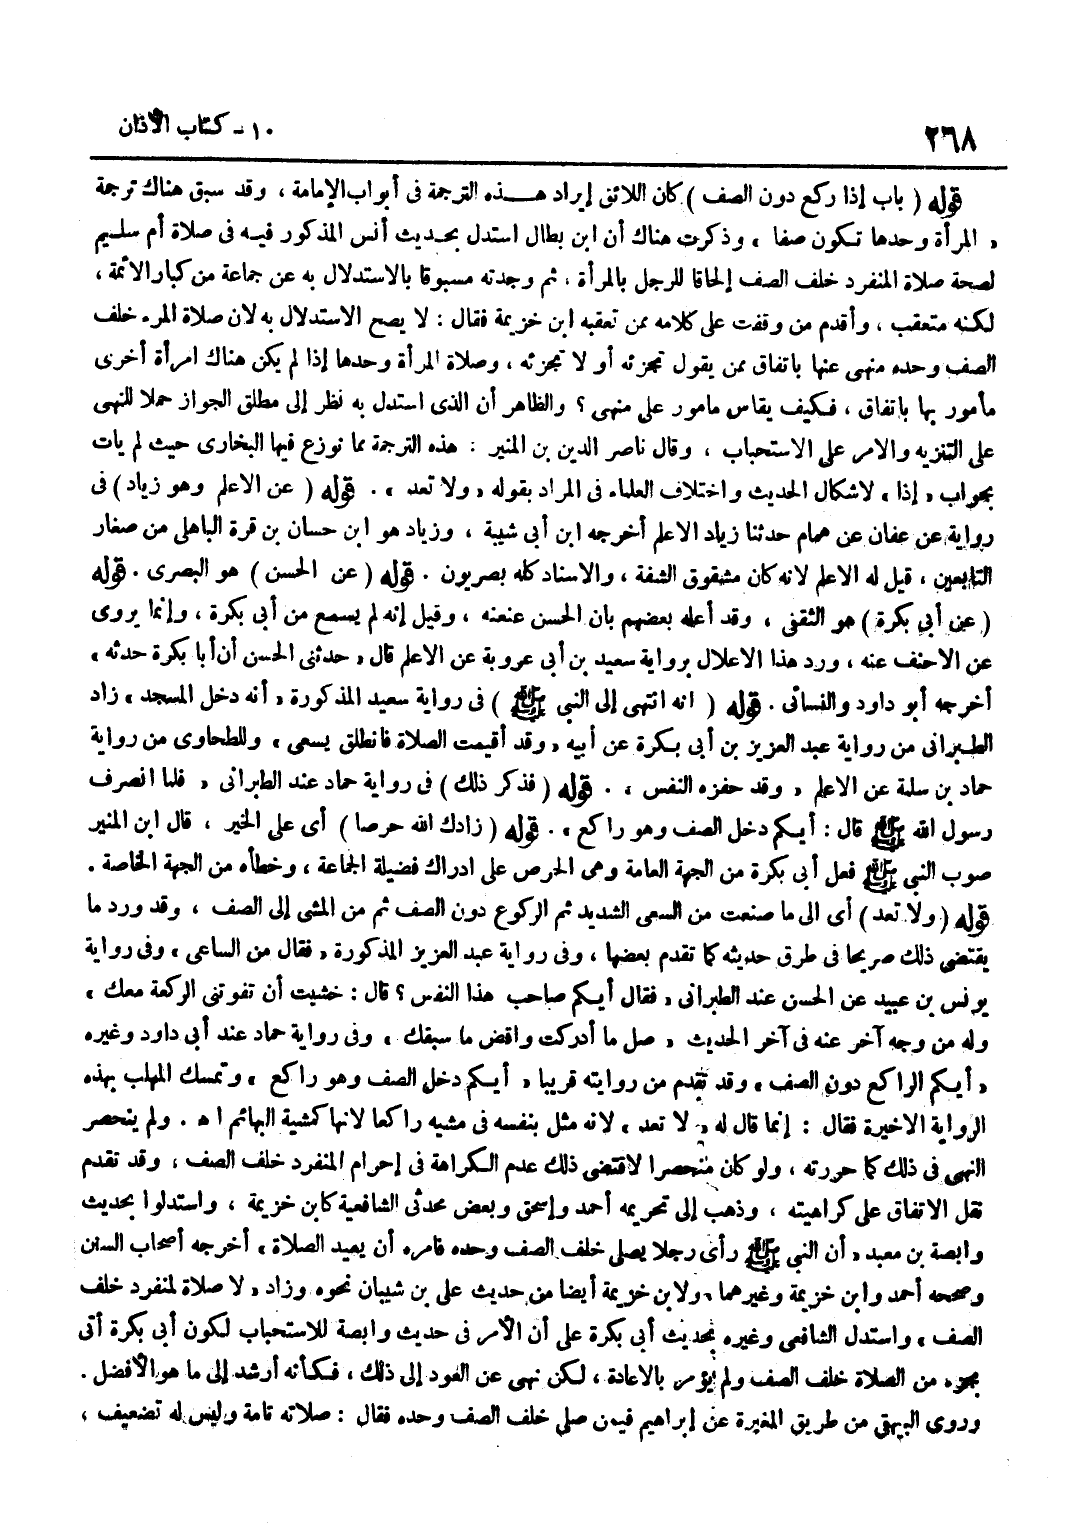 ٢٦٨
١٠ - كتاب الأذان
قوله ( باب إذا ركع دون الصف ) كان اللائق إيراد هذه الترجمة فى أبواب الإمامة ، وقد سبق هناك ترجمة
« المرأة وحدها تكون صفا » وذكرت هناك أن ابن بطال استدل بحديث أنس المذكور فيه فى صلاة أم سليم
لصحة صلاة المنفرد خلف الصف إلحاقا للرجل بالمرأة ، ثم وجدته مسبوقا بالاستدلال به عن جماعة من كبار الأئمة ،
لكنه متعقب ، وأقدم من وقفت على كلامه ممن تعقبه ابن خزيمة فقال : لا يصح الاستدلال به لان صلاة المرء خلف
الصف وحده منهى عنها باتفاق ممن يقول تجزئه أو لا تجزئه ، وصلاة المرأة وحدها إذا لم يكن هناك امرأة أخرى
مأمور بها باتفاق ، فكيف يقاس مامور على منهى ؟ والظاهر أن الذى استدل به نظر إلى مطلق الجواز حملا للنهى
على التنزيه والامر على الاستحباب ، وقال ناصر الدين بن المنير : هذه الترجمة مما نوزع فيها البخارى حيث لم يات
بجواب « إذا » لاشكال الحديث واختلاف العلماء فى المراد بقوله « ولا تعد » . قوله ( عن الاعلم وهو زياد ) فى
رواية عن عفان عن همام حدثنا زياد الاعلم أخرجه ابن أبي شيبة ، وزياد هو ابن حسان بن قرة الباهلى من صغار
التابعين ، قيل له الاعلم لانه كان مشقوق الشفة ، والاسناد كله بصريون . قوله ( عن الحسن ) هو البصرى . قوله
( عن أبي بكرة ) هو الثقفى ، وقد أعله بعضهم بان الحسن عنعنه ، وقيل إنه لم يسمع من أبي بكرة ، وإنما يروى
عن الاحنف عنه ، ورد هذا الاعلال برواية سعيد بن أبي عروبة عن الاعلم قال « حدثنى الحسن أن أبا بكرة حدثه »
أخرجه أبو داود والنسائى . قوله ( انه انتهى إلى النبي ﷺ ) فى رواية سعيد المذكورة « أنه دخل المسجد » زاد
الطبرانى من رواية عبد العزيز بن أبي بكرة عن أبيه « وقد أقيمت الصلاة فانطلق يسعى » وللطحاوى من رواية
حماد بن سلمة عن الاعلم « وقد حفزه النفس » . قوله ( فذكر ذلك ) فى رواية حماد عند الطبرانى « فلما انصرف
رسول الله ﷺ قال : أيكم دخل الصف وهو راكع » . قوله ( زادك الله حرصا ) أى على الخير ، قال ابن المنير
صوب النبي ﷺ فعل أبي بكرة من الجهة العامة وهى الحرص على ادراك فضيلة الجماعة ، وخطأه من الجهة الخاصة .
قوله ( ولا تعد ) أى الى ما صنعت من السعى الشديد ثم الركوع دون الصف ثم من المشى إلى الصف ، وقد ورد ما
يقتضى ذلك صريحا فى طرق حديثه كما تقدم بعضها ، وفى رواية عبد العزيز المذكورة « فقال من الساعى » وفى رواية
يونس بن عبيد عن الحسن عند الطبرانى « فقال أيكم صاحب هذا النفس ؟ قال : خشيت أن تفوتنى الركعة معك »
وله من وجه آخر عنه فى آخر الحديث « صل ما أدركت واقض ما سبقك » وفى رواية حماد عند أبى داود وغيره
« أيكم الراكع دون الصف » وقد تقدم من روايته قريبا « أيكم دخل الصف وهو راكع » وتمسك المهلب بهذه
الرواية الاخيرة فقال : إنما قال له « لا تعد » لانه مثل بنفسه فى مشيه راكعا لانها كمشية البهائم ا ه . ولم ينحصر
النهى فى ذلك كما حررته ، ولو كان منحصرا لاقتضى ذلك عدم الكراهة فى إحرام المنفرد خلف الصف ، وقد تقدم
نقل الاتفاق على كراهيته ، وذهب إلى تحريمه أحمد وإسحق وبعض محدثى الشافعية كابن خزيمة ، واستدلوا بحديث
وابصة بن معبد « أن النبي ﷺ رأى رجلا يصلى خلف الصف وحده فامره أن يعيد الصلاة » أخرجه أصحاب السنن
وصححه أحمد وابن خزيمة وغيرهما ، ولابن خزيمة أيضا من حديث على بن شيبان نحوه وزاد « لا صلاة لمنفرد خلف
الصف » واستدل الشافعى وغيره بحديث أبى بكرة على أن الأمر فى حديث وابصة للاستحباب لكون أبى بكرة أتى
بجزء من الصلاة خلف الصف ولم يؤمر بالاعادة ، لكن نهى عن العود إلى ذلك ، فكأنه أرشد إلى ما هو الأفضل .
وروى البيهقى من طريق المغيرة عن إبراهيم فيمن صلى خلف الصف وحده فقال : صلاته تامة وليس له تضعيف ،